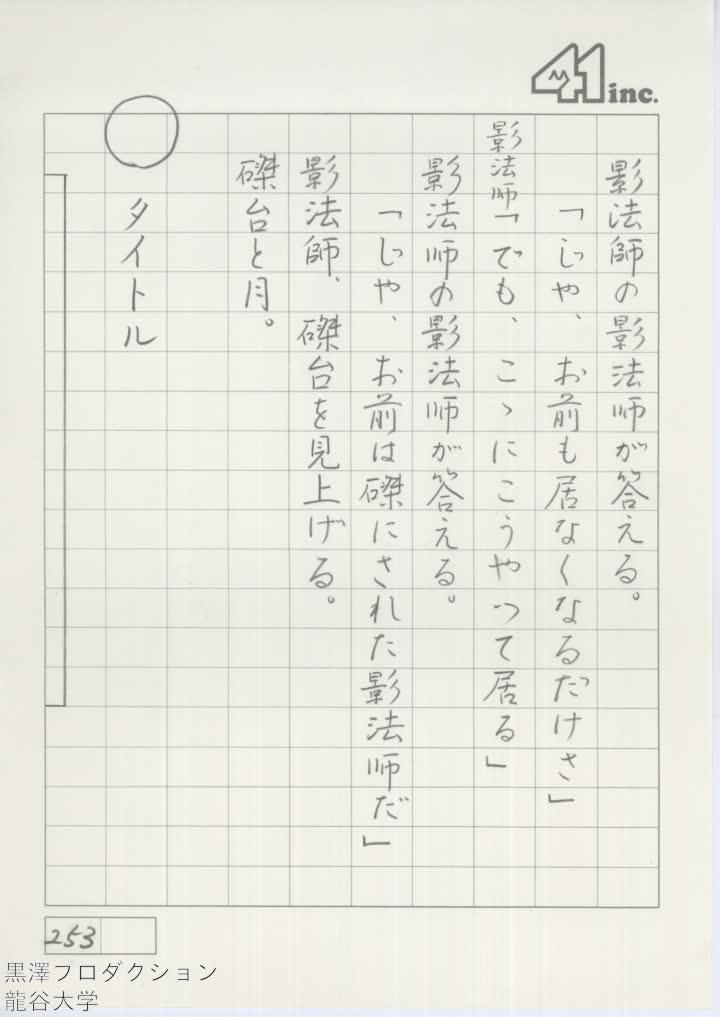 41 inc.
影法師の影法師が答える。
「じや、お前も居なくなるだけさ」
影法師「でも、こゝにこうやつて居る」
影法師の影法師が答える。
「じや、お前は磔にされた影法師だ」
影法師、磔台を見上げる。
磔台と月。
タイトル
253
黒澤フロダクション
龍谷大学